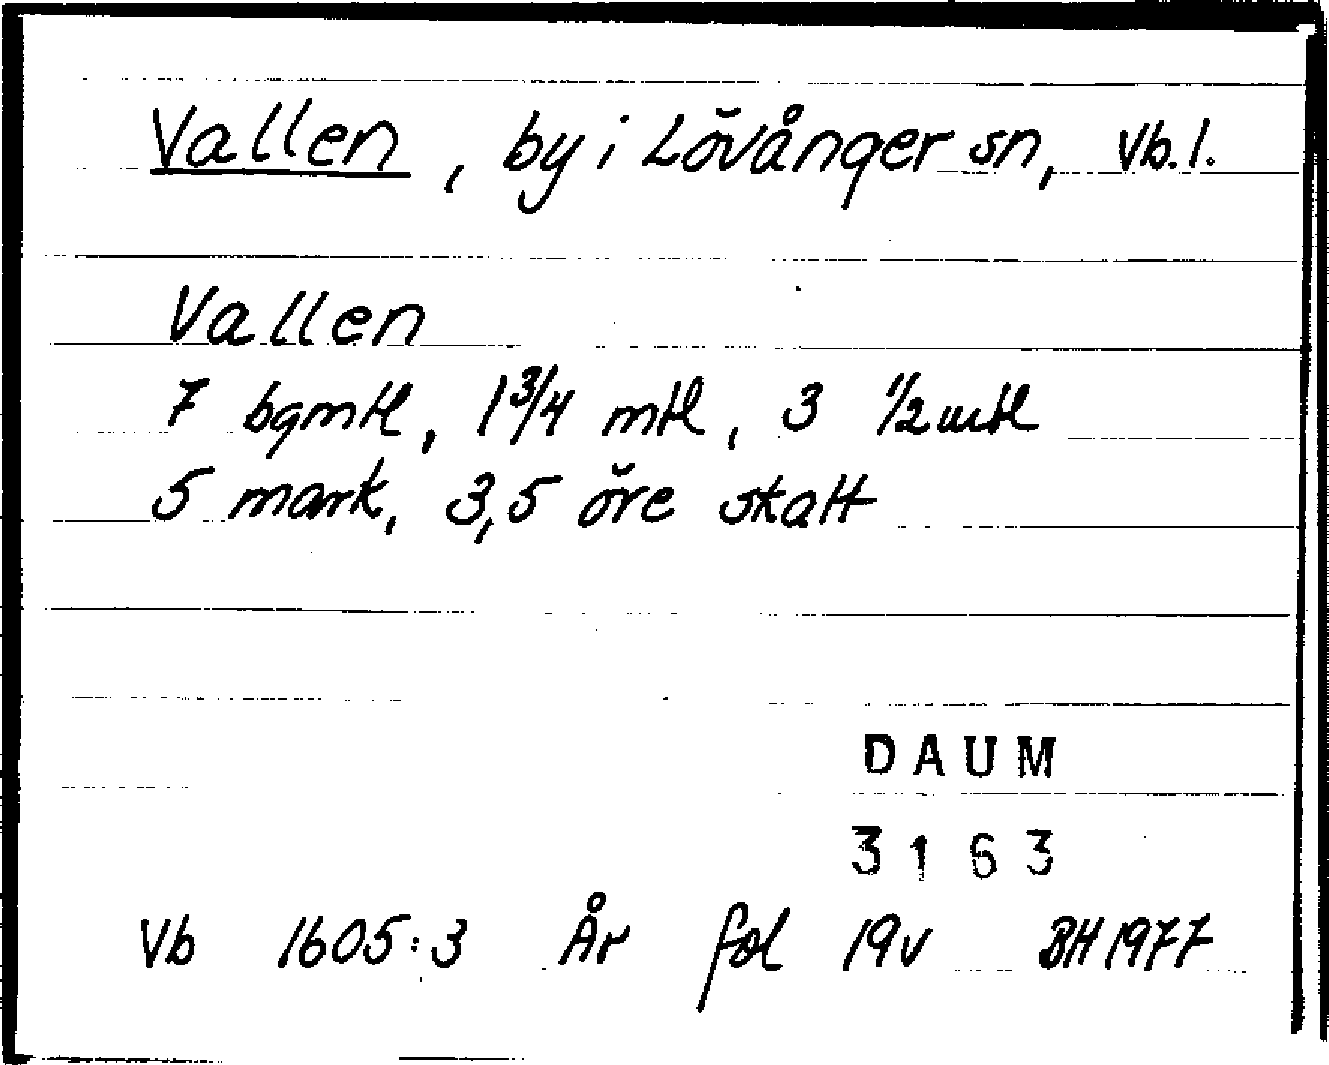 Vallen, by i Lövånger sn, Vb.l.
Vallen
7 bgmtl, 1 3/4 mtl, 3 1/2 mtl
5 mark, 3,5 öre skatt
DAUM
3163
Vb 1605:3 År fol 19v BH 1977